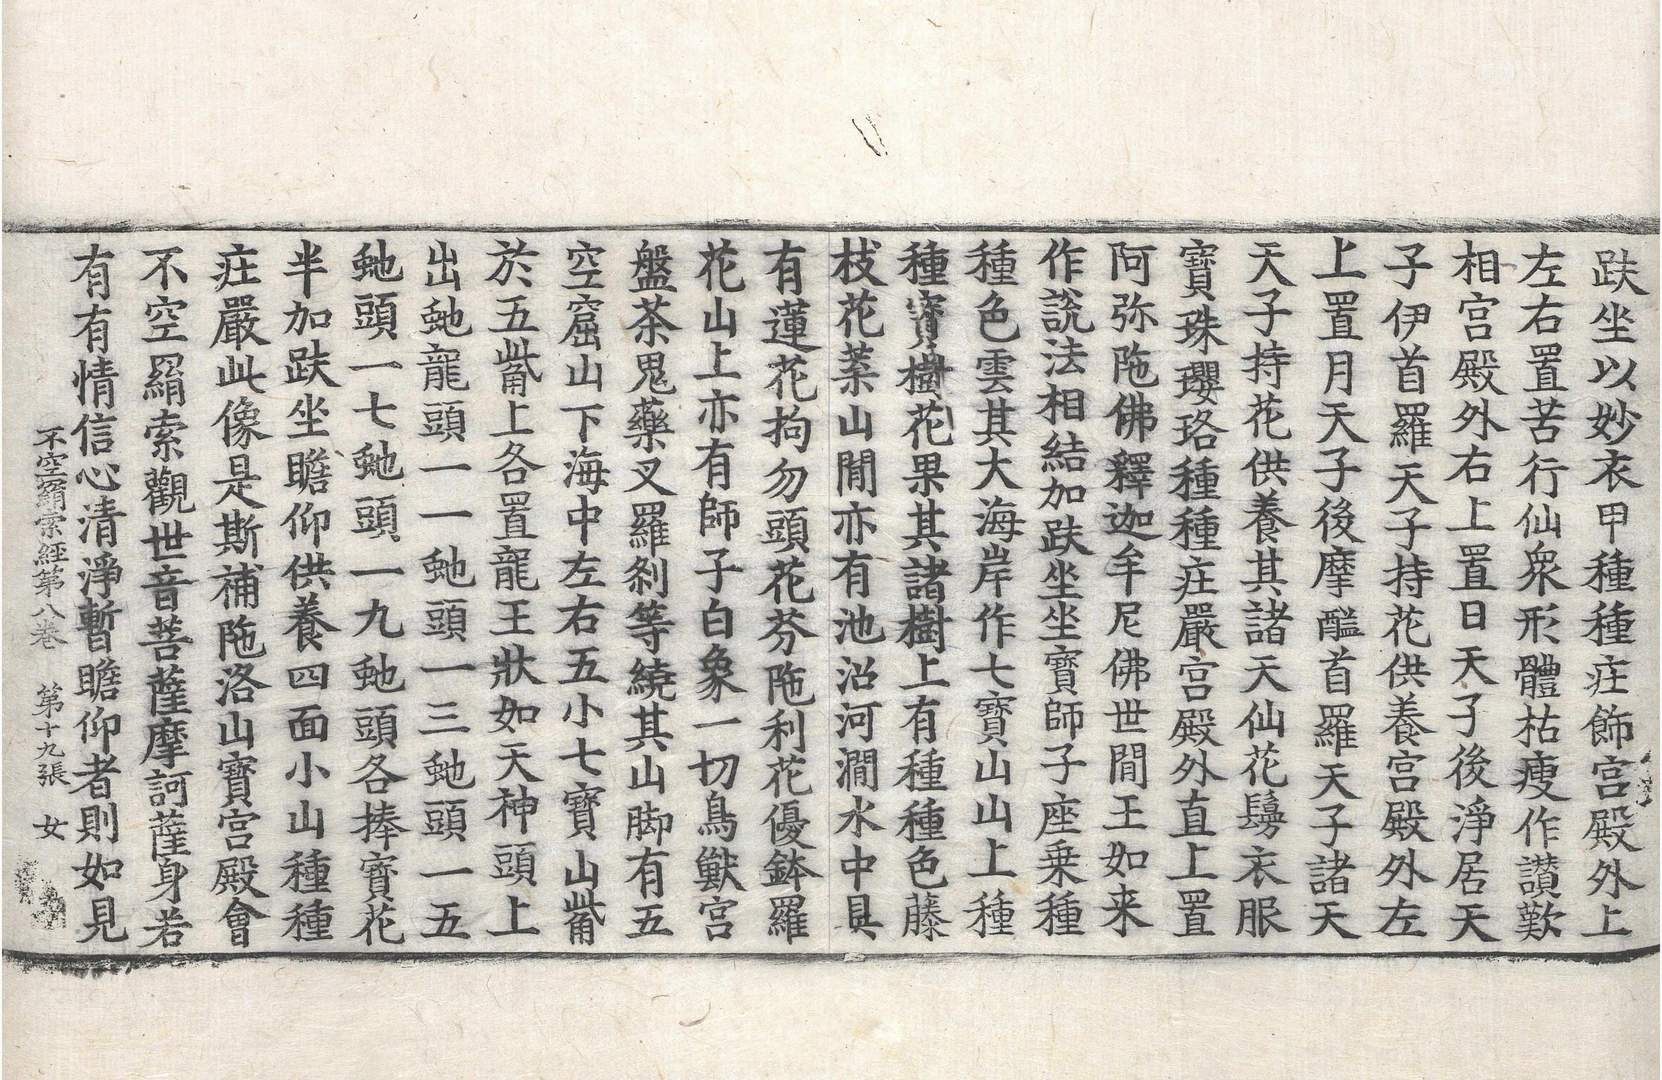 趺坐以妙衣甲種種庄飾宮殿外上
左右置苦行仙衆形體枯瘦作讃歎
相宮殿外右上置日天子後淨居天
子伊首羅天子持花供養宮殿外左
上置月天子後摩醯首羅天子諸天
天子持花供養其諸天仙花鬘衣服
寶珠瓔珞種種庄嚴宮殿外直上置
阿弥陁佛釋迦牟尼佛世間王如来
作說法相結加趺坐坐寶師子座乗種
種色雲其大海岸作七寶山山上種
種寶樹花果其諸樹上有種種色藤
枝花菓山間亦有池沼河澗水中具
有蓮花拘勿頭花芬陁利花優鉢羅
花山上亦有師子白象一切鳥獸宮
盤茶鬼藥叉羅剎等繞其山脚有五
空窟山下海中左右五小七寶山觜
於五觜上各置龍王狀如天神頭上
出虵龍頭一一虵頭一三虵頭一五
虵頭一七虵頭一九虵頭各捧寶花
半加趺坐瞻仰供養四面小山種種
庄嚴此像是斯補陁洛山寶宮殿會
不空羂索觀世音菩薩摩訶薩身若
有有情信心清淨暫瞻仰者則如見
不空羂索經第八卷 第十九張 女